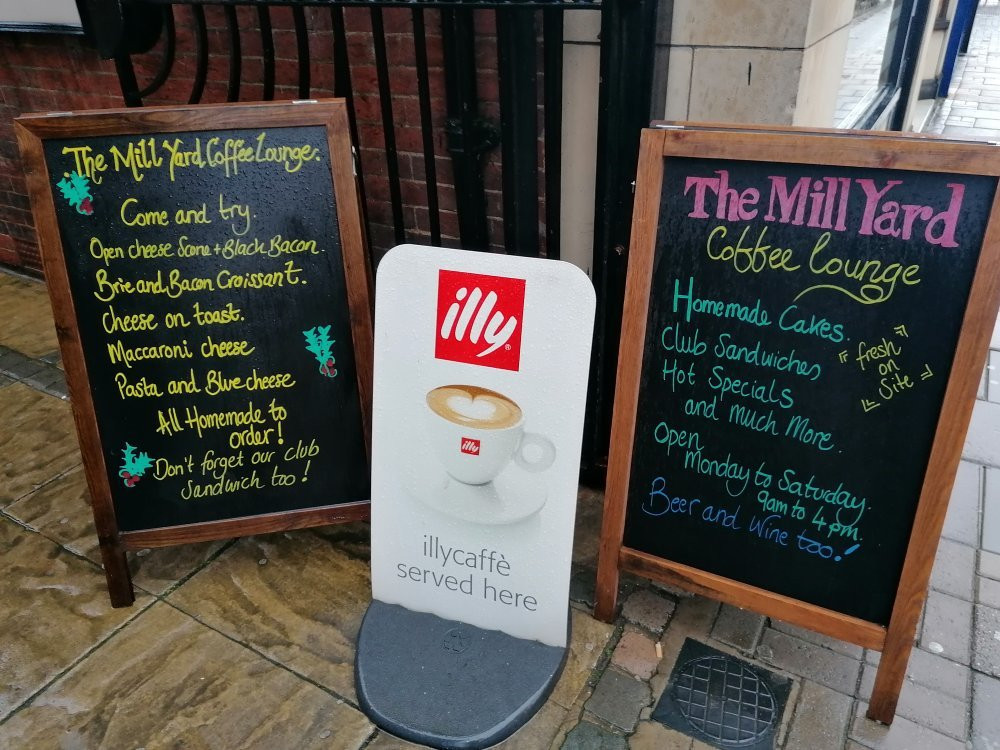 The Mill Yard Coffee Lounge.
Come and try.
Open cheese Scone + Black Bacon.
Brie and Bacon Croissant.
Cheese on toast.
Maccaroni cheese
Pasta and Blue cheese
All Homemade to
order!
Don't forget our club
Sandwich too!
illy
illy
illycaffè
served here
The Mill Yard
Coffee lounge
Homemade Cakes.
Club Sandwiches
Hot Specials
and much More.
fresh
on
Site
Open
Monday to Saturday.
9am to 4pm.
Beer and Wine too!